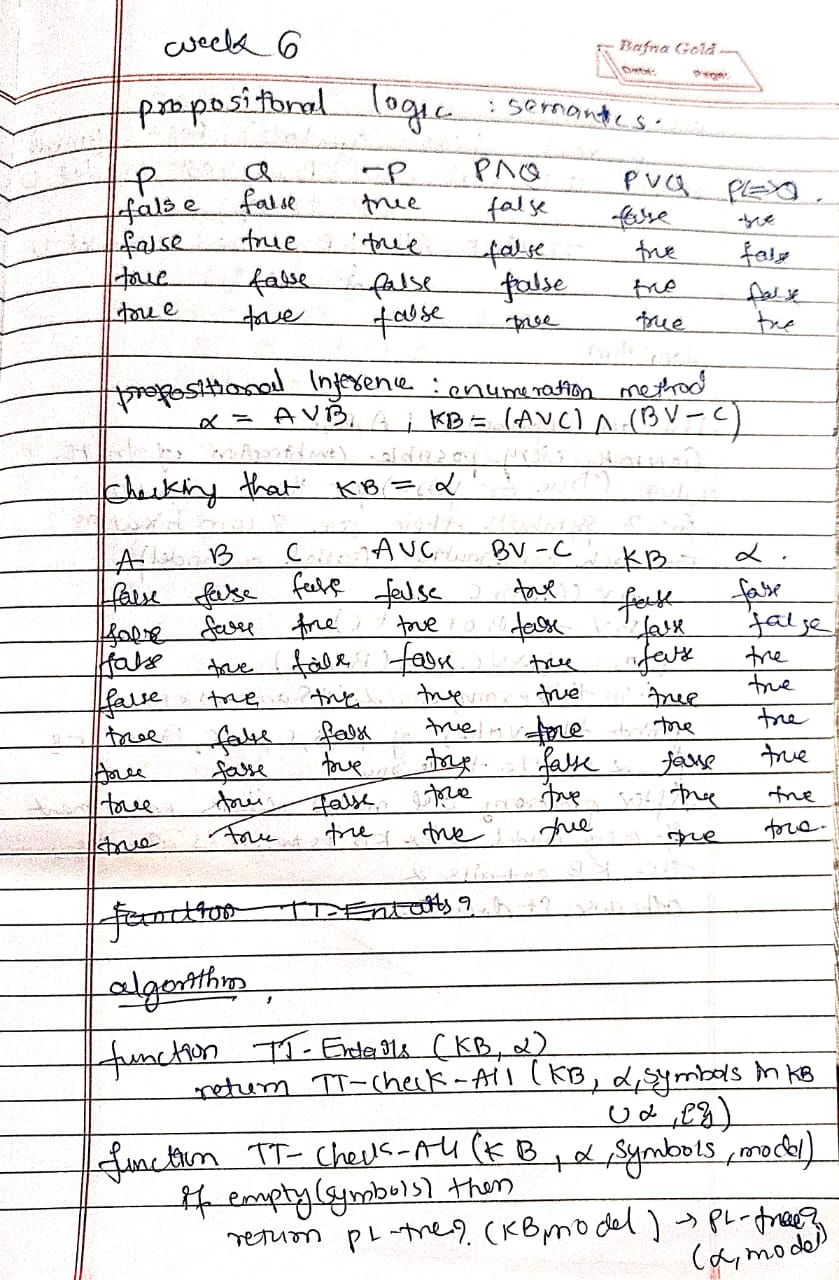 week 6
Bafna Gold
Date: Page:
propositional logic : semantics.
P Q -P P∧Q P∨Q P<=>Q.
false false true false false true
false true true false true false
true false false false true false
true true false true true true
propositional Inference : enumeration method
α = A∨B ; KB = (A∨C) ∧ (B∨-C)
checking that KB = α
A B C A∨C B∨-C KB α.
false false false false true false false
false false true true false false false
false true false false true false true
false true true true true true true
true false false true true true true
true false true true false false true
true true false true true true true
true true true true true true true.
function TT-Entails?
algorithm,
function TT-Entails (KB, α)
return TT-check-All (KB, α, symbols in KB
∪ α, {})
function TT-Check-All (KB, α, symbols, model)
if empty(symbols) then
return PL-true? (KB, model) → PL-true?
(α, model)